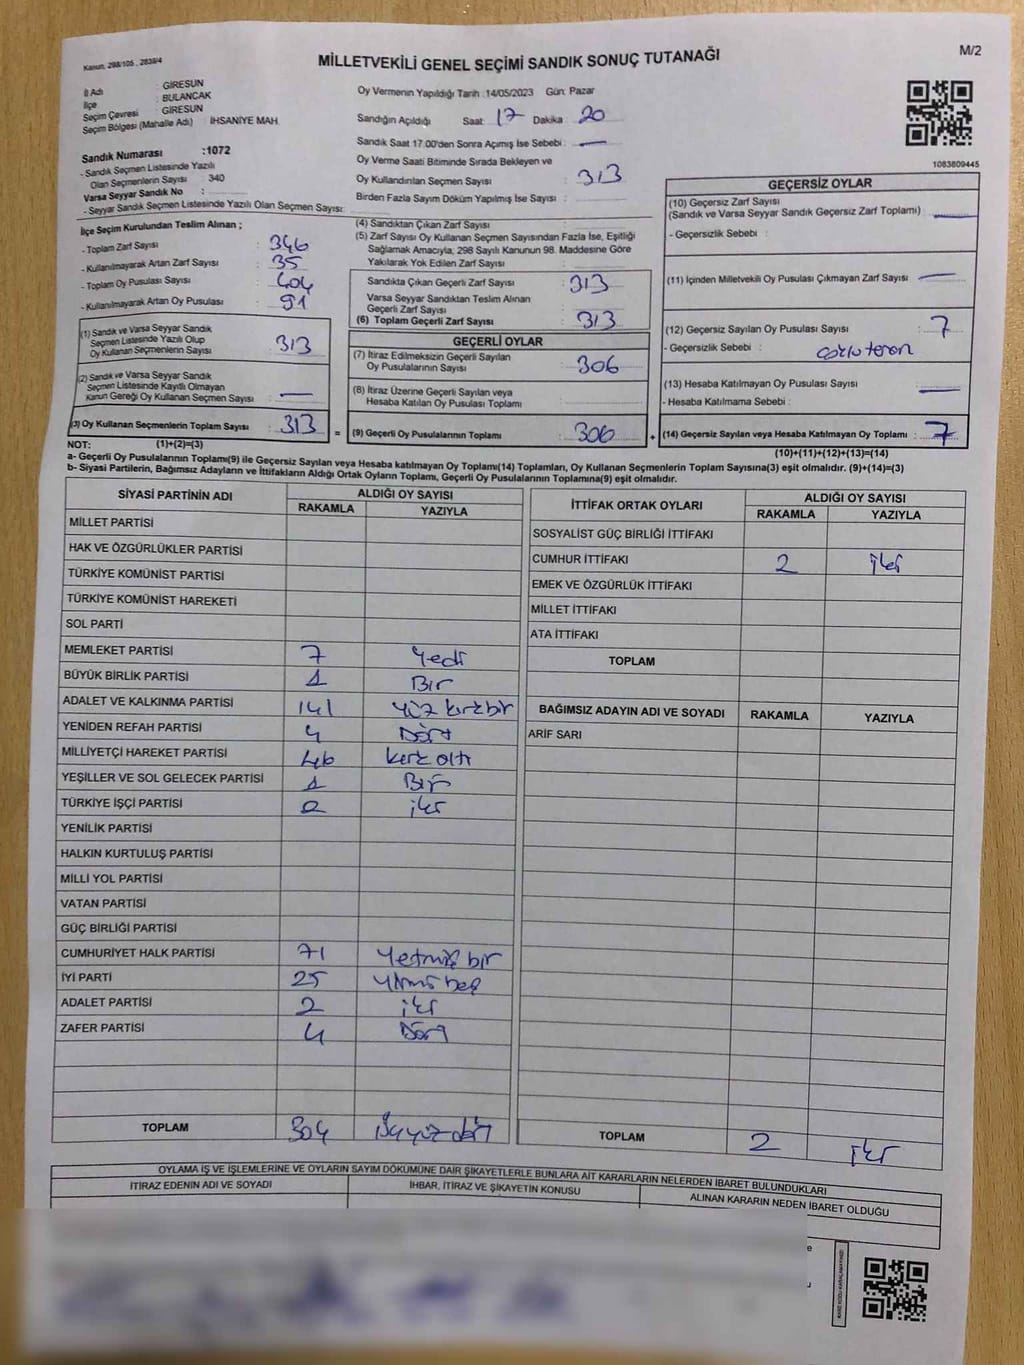 Kanun, 298/105 , 2839/4
MİLLETVEKİLİ GENEL SEÇİMİ SANDIK SONUÇ TUTANAĞI
M/2
İl Adı : GİRESUN
İlçe : BULANCAK
Seçim Çevresi : GİRESUN
Seçim Bölgesi (Mahalle Adı) : İHSANİYE MAH.
Sandık Numarası :1072
- Sandık Seçmen Listesinde Yazılı
Olan Seçmenlerin Sayısı : 340
Varsa Seyyar Sandık No :
- Seyyar Sandık Seçmen Listesinde Yazılı Olan Seçmen Sayısı:
Oy Vermenin Yapıldığı Tarih :14/05/2023 Gün: Pazar
Sandığın Açıldığı Saat 17 Dakika 20
Sandık Saat 17.00'den Sonra Açımış İse Sebebi : —
Oy Verme Saati Bitiminde Sırada Bekleyen ve
Oy Kullandırılan Seçmen Sayısı : 313
Birden Fazla Sayım Döküm Yapılmış İse Sayısı :
1083809445
İlçe Seçim Kurulundan Teslim Alınan ;
- Toplam Zarf Sayısı : 346
- Kullanılmayarak Artan Zarf Sayısı : 35
- Toplam Oy Pusulası Sayısı : 404
- Kullanılmayarak Artan Oy Pusulası : 91
(1) Sandık ve Varsa Seyyar Sandık
Seçmen Listesinde Yazılı Olup
Oy Kullanan Seçmenlerin Sayısı : 313
(2) Sandık ve Varsa Seyyar Sandık
Seçmen Listesinde Kayıtlı Olmayan
Kanun Gereği Oy Kullanan Seçmen Sayısı : —
(3) Oy Kullanan Seçmenlerin Toplam Sayısı : 313
(4) Sandıktan Çıkan Zarf Sayısı :
(5) Zarf Sayısı Oy Kullanan Seçmen Sayısından Fazla İse, Eşitliği
Sağlamak Amacıyla, 298 Sayılı Kanunun 98. Maddesine Göre
Yakılarak Yok Edilen Zarf Sayısı :
Sandıkta Çıkan Geçerli Zarf Sayısı : 313
Varsa Seyyar Sandıktan Teslim Alınan
Geçerli Zarf Sayısı :
(6) Toplam Geçerli Zarf Sayısı : 313
GEÇERLİ OYLAR
(7) İtiraz Edilmeksizin Geçerli Sayılan
Oy Pusulalarının Sayısı : 306
(8) İtiraz Üzerine Geçerli Sayılan veya
Hesaba Katılan Oy Pusulası Toplamı :
= (9) Geçerli Oy Pusulalarının Toplamı : 306
GEÇERSİZ OYLAR
(10) Geçersiz Zarf Sayısı
(Sandık ve Varsa Seyyar Sandık Geçersiz Zarf Toplamı) : —
- Geçersizlik Sebebi :
(11) İçinden Milletvekili Oy Pusulası Çıkmayan Zarf Sayısı : —
(12) Geçersiz Sayılan Oy Pusulası Sayısı : 7
- Geçersizlik Sebebi :
(13) Hesaba Katılmayan Oy Pusulası Sayısı : —
- Hesaba Katılmama Sebebi :
+ (14) Geçersiz Sayılan veya Hesaba Katılmayan Oy Toplamı : 7
NOT: (1)+(2)=(3)
(10)+(11)+(12)+(13)=(14)
a- Geçerli Oy Pusulalarının Toplamı(9) ile Geçersiz Sayılan veya Hesaba katılmayan Oy Toplamı(14) Toplamları, Oy Kullanan Seçmenlerin Toplam Sayısına(3) eşit olmalıdır. (9)+(14)=(3)
b- Siyasi Partilerin, Bağımsız Adayların ve İttifakların Aldığı Ortak Oyların Toplamı, Geçerli Oy Pusulalarının Toplamına(9) eşit olmalıdır.
SİYASİ PARTİNİN ADI ALDIĞI OY SAYISI
RAKAMLA YAZIYLA
MİLLET PARTİSİ
HAK VE ÖZGÜRLÜKLER PARTİSİ
TÜRKİYE KOMÜNİST PARTİSİ
TÜRKİYE KOMÜNİST HAREKETİ
SOL PARTİ
MEMLEKET PARTİSİ 7 Yedi
BÜYÜK BİRLİK PARTİSİ 1 Bir
ADALET VE KALKINMA PARTİSİ 141 Yüz kırk bir
YENİDEN REFAH PARTİSİ 4 Dört
MİLLİYETÇİ HAREKET PARTİSİ 46 kırk altı
YEŞİLLER VE SOL GELECEK PARTİSİ 1 Bir
TÜRKİYE İŞÇİ PARTİSİ 2 iki
YENİLİK PARTİSİ
HALKIN KURTULUŞ PARTİSİ
MİLLİ YOL PARTİSİ
VATAN PARTİSİ
GÜÇ BİRLİĞİ PARTİSİ
CUMHURİYET HALK PARTİSİ 71 Yetmiş bir
İYİ PARTİ 25 Yirmi beş
ADALET PARTİSİ 2 iki
ZAFER PARTİSİ 4 Dört
TOPLAM 304 Üçyüz dört
İTTİFAK ORTAK OYLARI ALDIĞI OY SAYISI
RAKAMLA YAZIYLA
SOSYALİST GÜÇ BİRLİĞİ İTTİFAKI
CUMHUR İTTİFAKI 2 iki
EMEK VE ÖZGÜRLÜK İTTİFAKI
MİLLET İTTİFAKI
ATA İTTİFAKI
TOPLAM
BAĞIMSIZ ADAYIN ADI VE SOYADI RAKAMLA YAZIYLA
ARİF SARI
TOPLAM 2 iki
OYLAMA İŞ VE İŞLEMLERİNE VE OYLARIN SAYIM DÖKÜMÜNE DAİR ŞİKAYETLERLE BUNLARA AİT KARARLARIN NELERDEN İBARET BULUNDUKLARI
İTİRAZ EDENİN ADI VE SOYADI İHBAR, İTİRAZ VE ŞİKAYETİN KONUSU ALINAN KARARIN NEDEN İBARET OLDUĞU